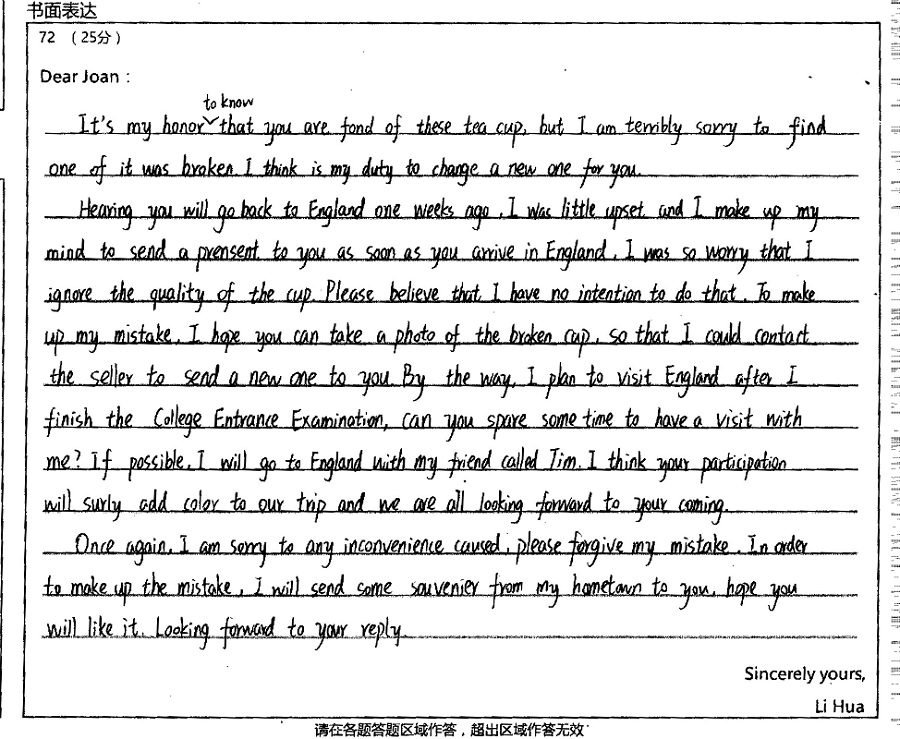 书面表达
72 （25分）
Dear Joan：
It's my honor to know that you are fond of these tea cup, but I am terribly sorry to find
one of it was broken. I think is my duty to change a new one for you.
Hearing you will go back to England one weeks ago, I was little upset and I make up my
mind to send a prensent to you as soon as you arrive in England. I was so worry that I
ignore the quality of the cup. Please believe that I have no intention to do that. To make
up my mistake, I hope you can take a photo of the broken cup, so that I could contact
the seller to send a new one to you. By the way, I plan to visit England after I
finish the College Entrance Examination, can you spare some time to have a visit with
me? If possible, I will go to England with my friend called Tim. I think your participation
will surly add color to our trip and we are all looking forward to your coming.
Once again, I am sorry to any inconvenience caused, please forgive my mistake. In order
to make up the mistake, I will send some souvenier from my hometown to you, hope you
will like it. Looking forward to your reply.
Sincerely yours,
Li Hua
请在各题答题区域作答，超出区域作答无效